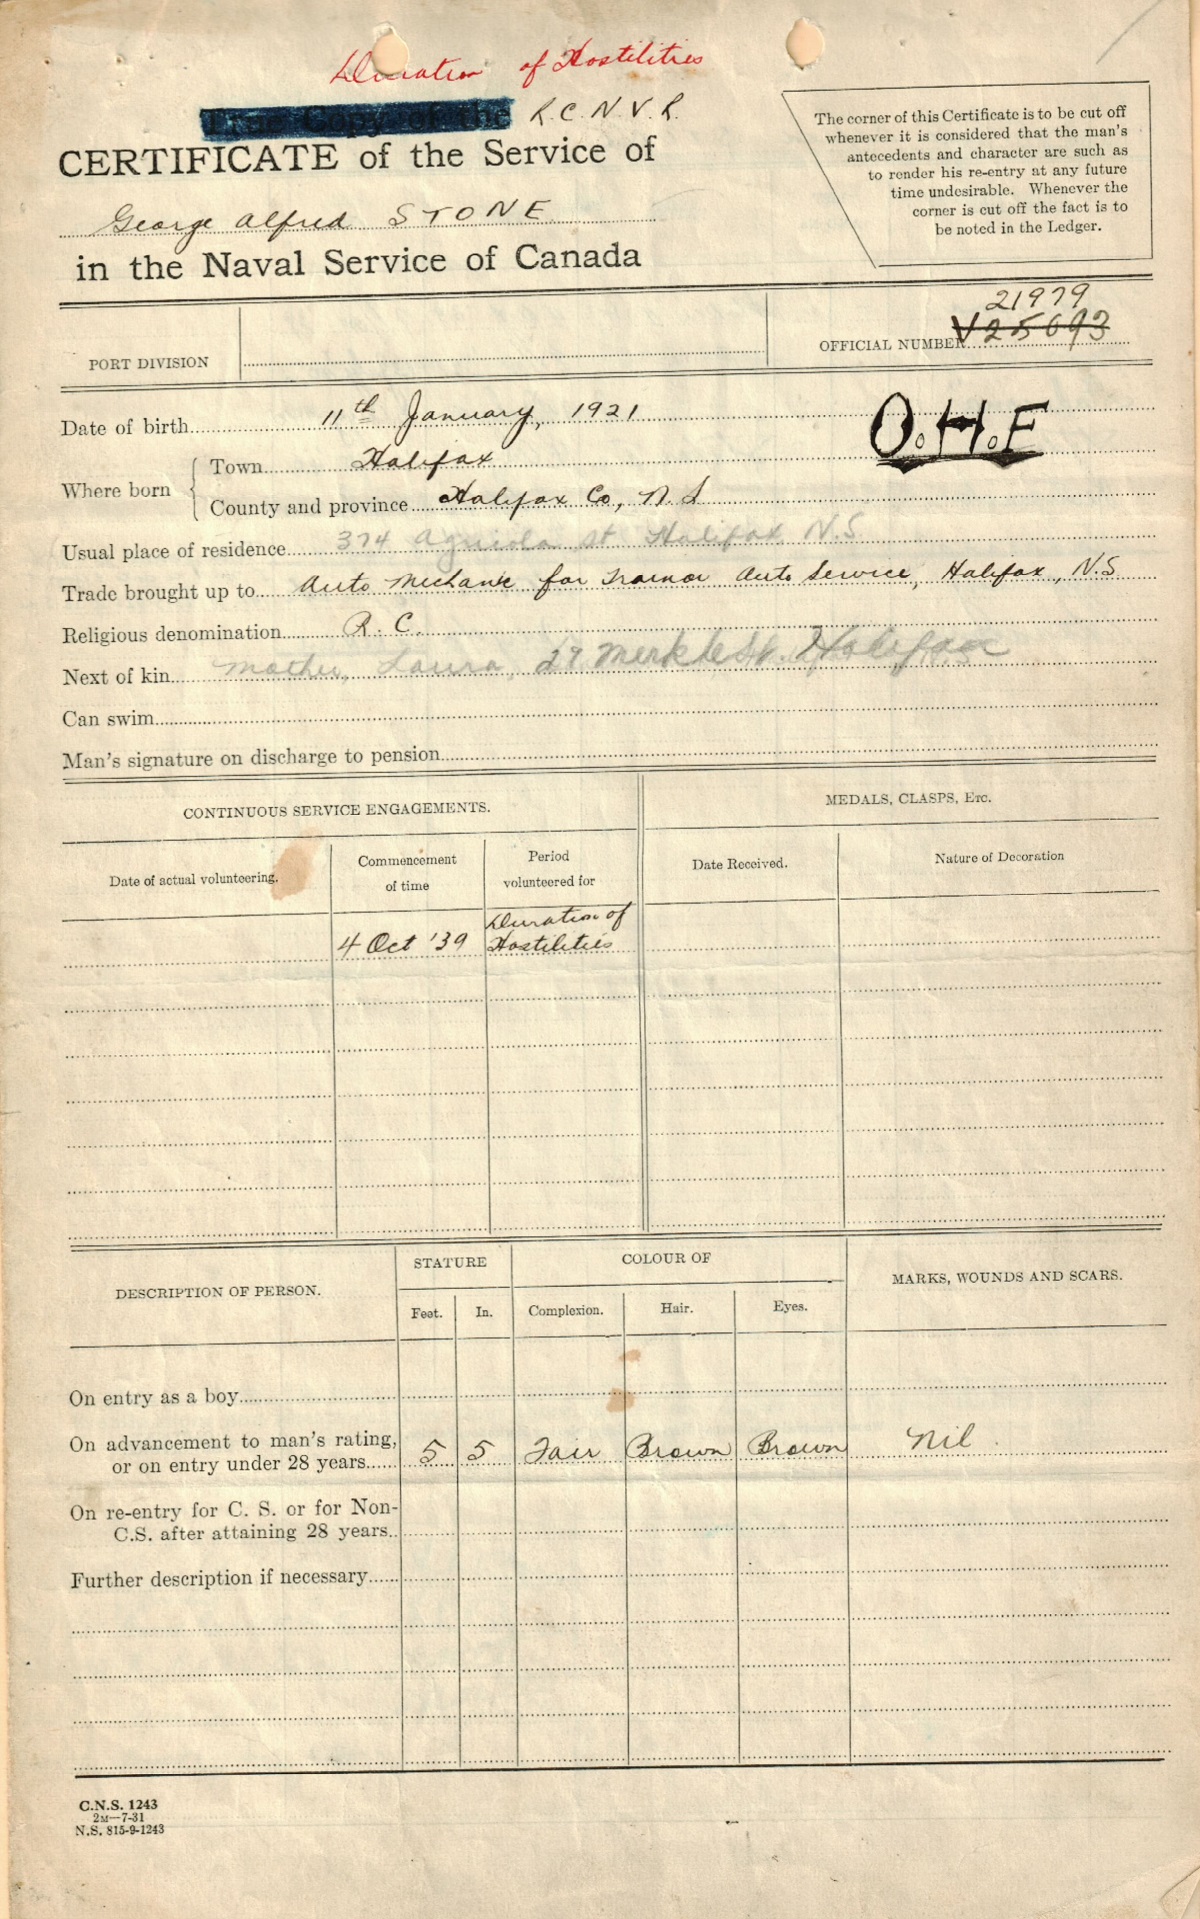 Duration of Hostilities
True Copy of the R.C.N.V.R.
CERTIFICATE of the Service of
George Alfred STONE
in the Naval Service of Canada
The corner of this Certificate is to be cut off
whenever it is considered that the man's
antecedents and character are such as
to render his re-entry at any future
time undesirable. Whenever the
corner is cut off the fact is to
be noted in the Ledger.
PORT DIVISION
21979
OFFICIAL NUMBER V25693
Date of birth 11th January, 1921
O.H.F
Where born
Town Halifax
County and province Halifax Co, N.S
Usual place of residence 374 Agricola St Halifax N.S
Trade brought up to Auto Mechanic for Trainor Auto Service, Halifax, N.S
Religious denomination R.C.
Next of kin Mother, Laura, 27 Merkle St. Halifax N.S
Can swim
Man's signature on discharge to pension
CONTINUOUS SERVICE ENGAGEMENTS.
MEDALS, CLASPS, Etc.
Date of actual volunteering.
Commencement
of time
Period
volunteered for
Date Received.
Nature of Decoration
4 Oct '39
Duration of
Hostilities
DESCRIPTION OF PERSON.
STATURE
COLOUR OF
MARKS, WOUNDS AND SCARS.
Feet.
In.
Complexion.
Hair.
Eyes.
On entry as a boy
On advancement to man's rating,
or on entry under 28 years 5 5 Fair Brown Brown Nil
On re-entry for C. S. or for Non-
C.S. after attaining 28 years
Further description if necessary
C.N.S. 1243
2M—7-31
N.S. 815-9-1243